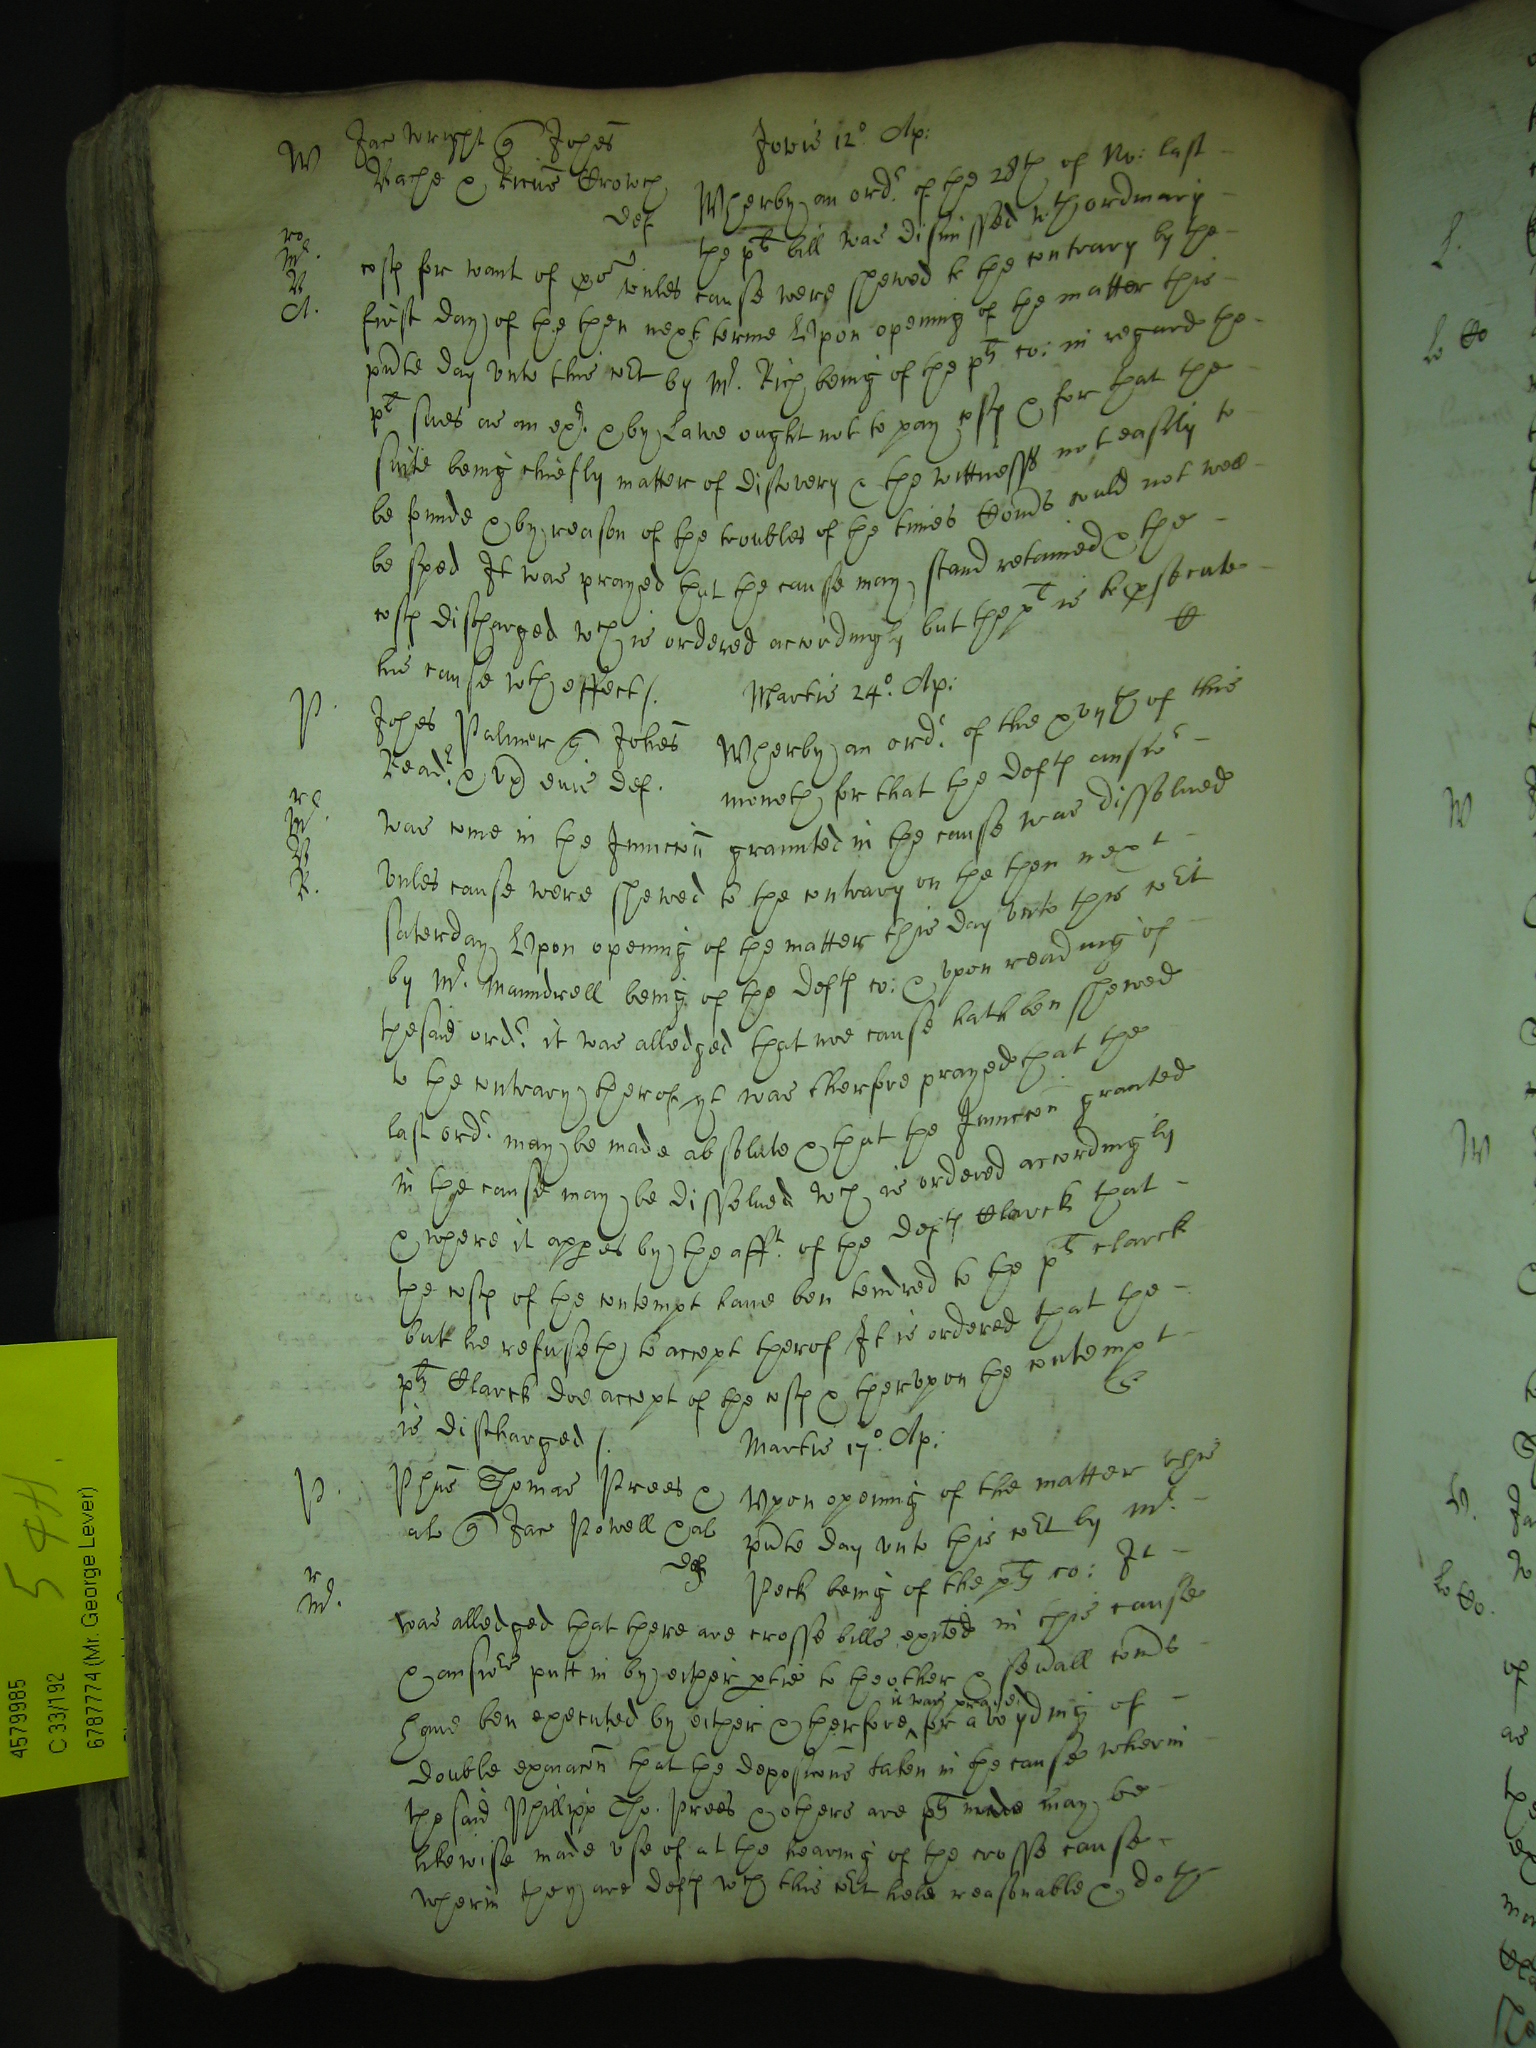 W Jac Wright q Johes Jovis 12º. Ap:
Bache & Ricũs Crowch Wherby an ordr. of the 28th of No: last
def the plts bill was dismissed wth ordinary
costs for want of pros vnles cause were shewed to the contrary by the
first day of the then next terme Upon opening of the matter this
pñte day vnto this coĩt by Mr. Rich being of the plts co: in regard the
plt sues as an exr. & by Lawe ought not to pay costs & for that the
suite being chiefly matter of discovery & the wittnesses not easily to
be founde & by reason of the troubles of the times Comõs could not well
be sped It was prayed that the cause may stand retained & the
costs discharged wch is ordered accordingly but the plt is to psecute
his cause wth effect /.
P. Martis 24º. Ap:
Johes Palmer q Johes Wherby an ordr. of the xvijth of this
Read & vx eius def. moneth for that the defts answer
was come in the Iniunccoñ graunted in the cause was dissolued
vnles cause were shewed to the contrary on the then next
Saterday Upon opening of the matter this day vnto this coĩt
by Mr. Maundrell being of the defts co: & vpon reading of
the said ordr. it was alledged that noe cause hath ben shewed
to the contrary therof yt was therfore prayed that the
last ordr. may be made absolute & that the Iniunccoñ granted
in the cause may be dissolued wch is ordered accordingly
& where it appes by the afft. of the defts Clarck that
the costs of the contempt haue ben tendred to the plts clarck
but he refuseth to accept therof It is ordered that the
plts Clarck doe accept of the costs & thervpon the contempt
is discharged /.
P. Martis 17º. Ap:
Phũs Thomas Prees & Vpon opening of the matter this
al q Jac Powell & al pñte day vnto this coĩt by Mr.
def Peck being of the plts co: It
was alledged that there are crosse bills exĩted in this cause
& answrs putt in by either ptie to the other & seuãll comõs
haue ben executed by either & therfore ^it was prayed for avoyding of
double exanacoñ that the deposicoñs taken in the cause wherin
the said Phillipp Tho. Prees & others are plts made may be
likewise made vse of at the hearing of the crosse cause
wherin they are defts wch this coĩt held reasonable & doth
544.
4579985
C 33/192
6787774 (Mr. George Lever)